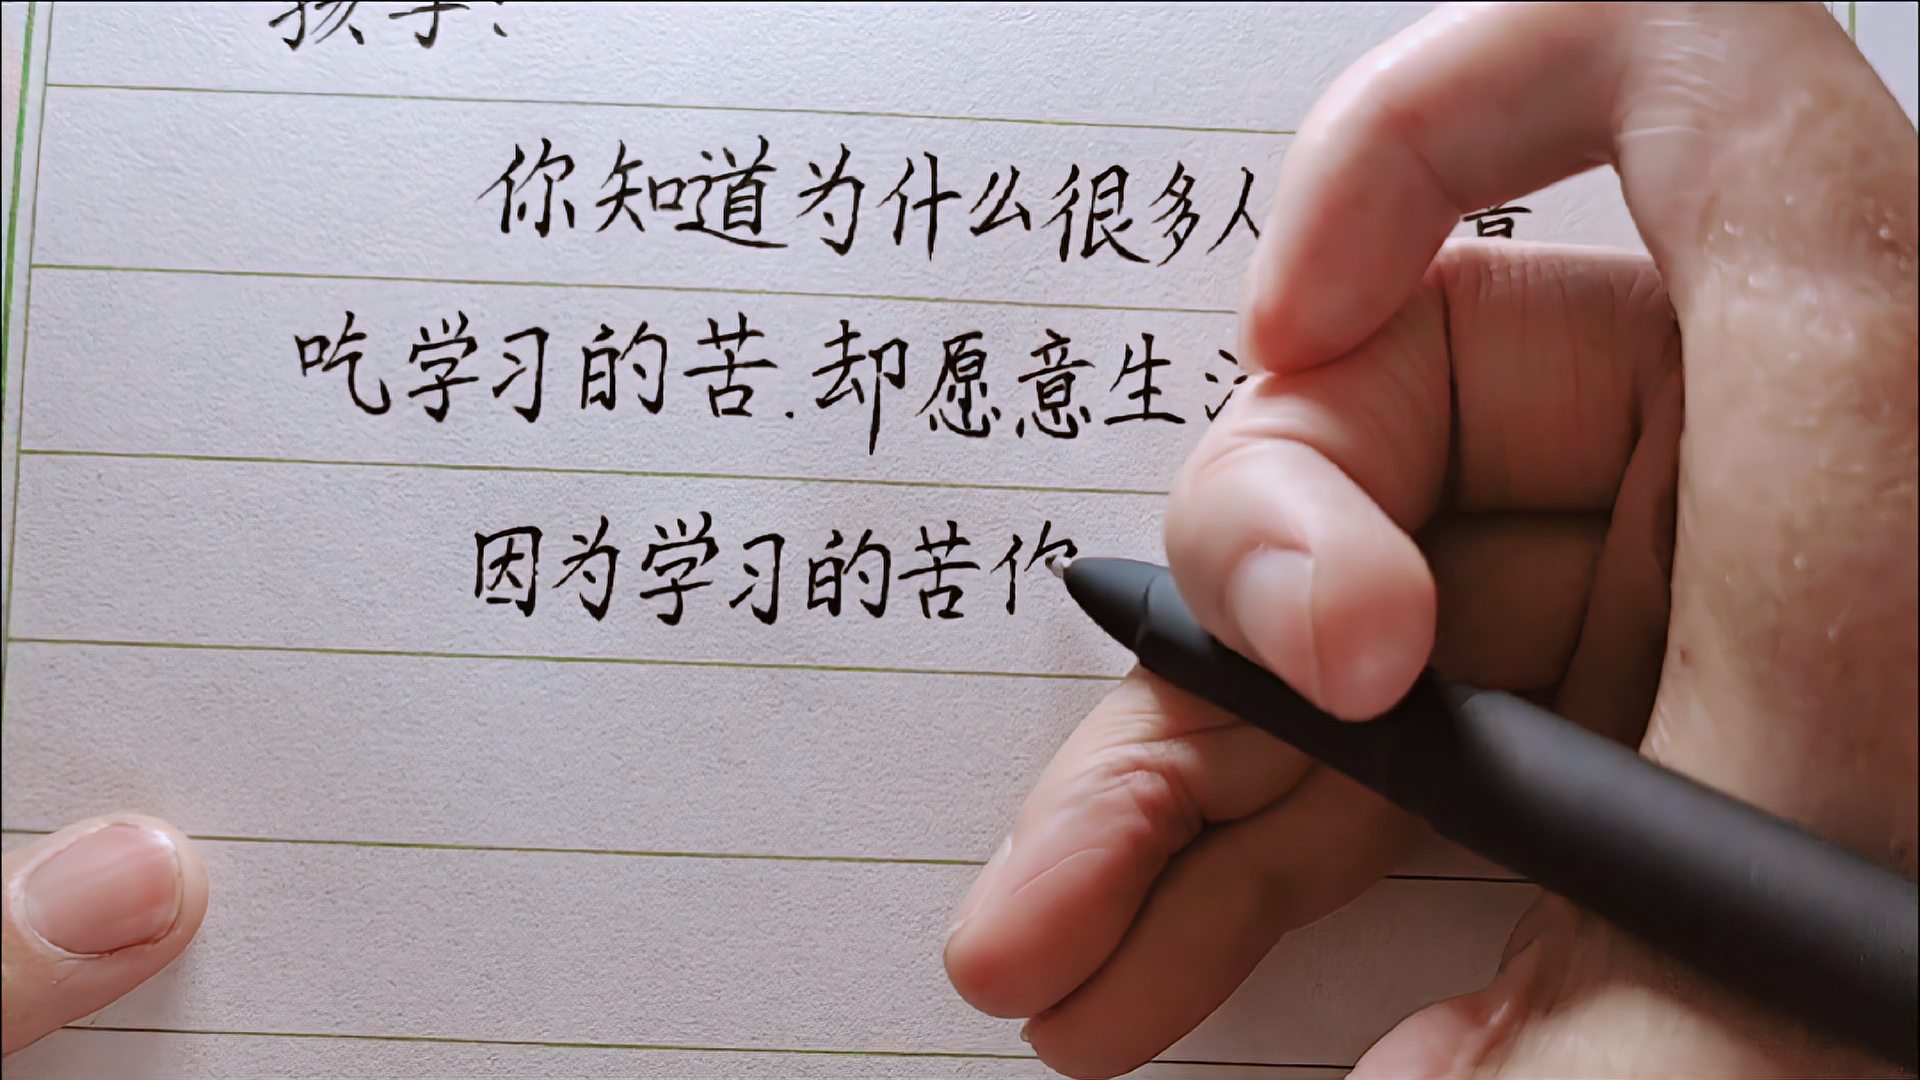 孩子:
你知道为什么很多人
吃学习的苦.却愿意生
因为学习的苦你